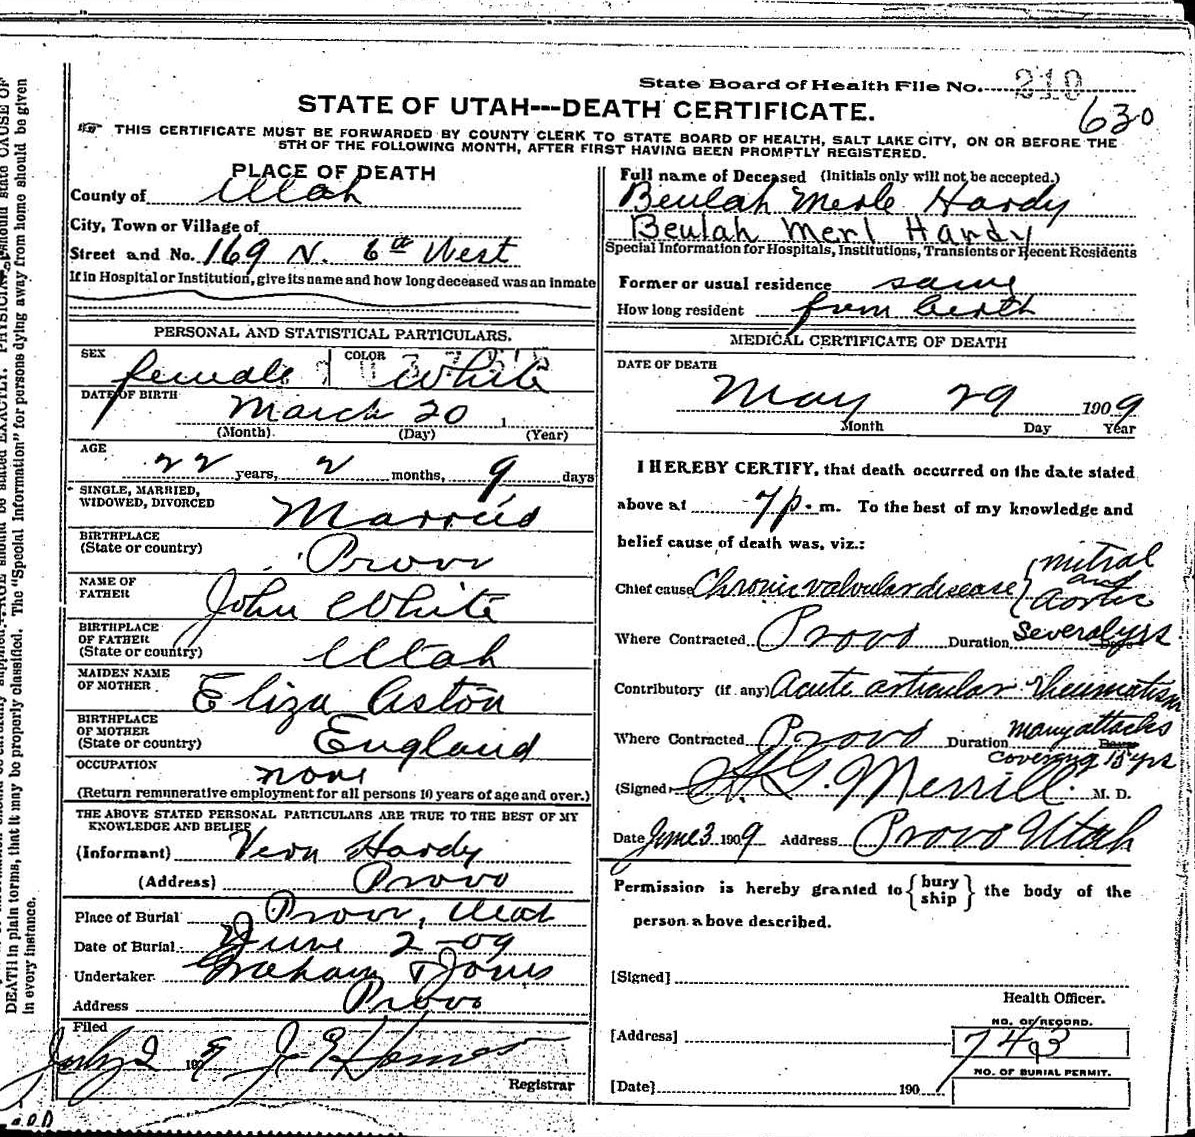 State Board of Health File No. 210
630
STATE OF UTAH---DEATH CERTIFICATE.
THIS CERTIFICATE MUST BE FORWARDED BY COUNTY CLERK TO STATE BOARD OF HEALTH, SALT LAKE CITY, ON OR BEFORE THE
5TH OF THE FOLLOWING MONTH, AFTER FIRST HAVING BEEN PROMPTLY REGISTERED.
PLACE OF DEATH
County of Utah
City, Town or Village of
Street and No. 169 N. 6th West
If in Hospital or Institution, give its name and how long deceased was an inmate
PERSONAL AND STATISTICAL PARTICULARS.
SEX
female
COLOR
White
DATE OF BIRTH
March 20
(Month) (Day) (Year)
AGE
22 years, 2 months, 9 days
SINGLE, MARRIED,
WIDOWED, DIVORCED
Married
BIRTHPLACE
(State or country)
Provo
NAME OF
FATHER
John White
BIRTHPLACE
OF FATHER
(State or country)
Utah
MAIDEN NAME
OF MOTHER
Eliza Aston
BIRTHPLACE
OF MOTHER
(State or country)
England
OCCUPATION
none
(Return remunerative employment for all persons 10 years of age and over.)
THE ABOVE STATED PERSONAL PARTICULARS ARE TRUE TO THE BEST OF MY
KNOWLEDGE AND BELIEF
(Informant) Vern Hardy
(Address) Provo
Place of Burial Provo, Utah
Date of Burial June 2 - 09
Undertaker Graham & Jones
Address Provo
Filed
July 2 1909
Registrar
Full name of Deceased (Initials only will not be accepted.)
Beulah Merle Hardy
Beulah Merl Hardy
Special Information for Hospitals, Institutions, Transients or Recent Residents
Former or usual residence same
How long resident from birth
MEDICAL CERTIFICATE OF DEATH
DATE OF DEATH
May 29 1909
Month Day Year
I HEREBY CERTIFY, that death occurred on the date stated
above at 7 p. m. To the best of my knowledge and
belief cause of death was, viz.:
Chief cause Chronic valvular disease { mitral and Aortic
Where Contracted Provo Duration Several yrs.
Contributory (if any) Acute articular rheumatism
Where Contracted Provo Duration many attacks
covering 15 yrs
(Signed) H. G. Merrill M. D.
Date June 3 1909 Address Provo Utah
Permission is hereby granted to { bury ship } the body of the
person above described.
[Signed]
Health Officer.
[Address]
NO. OF RECORD.
743
NO. OF BURIAL PERMIT.
[Date] 190
DEATH in plain terms, that it may be properly classified. The "Special Information" for persons dying away from home should be given
in every instance.